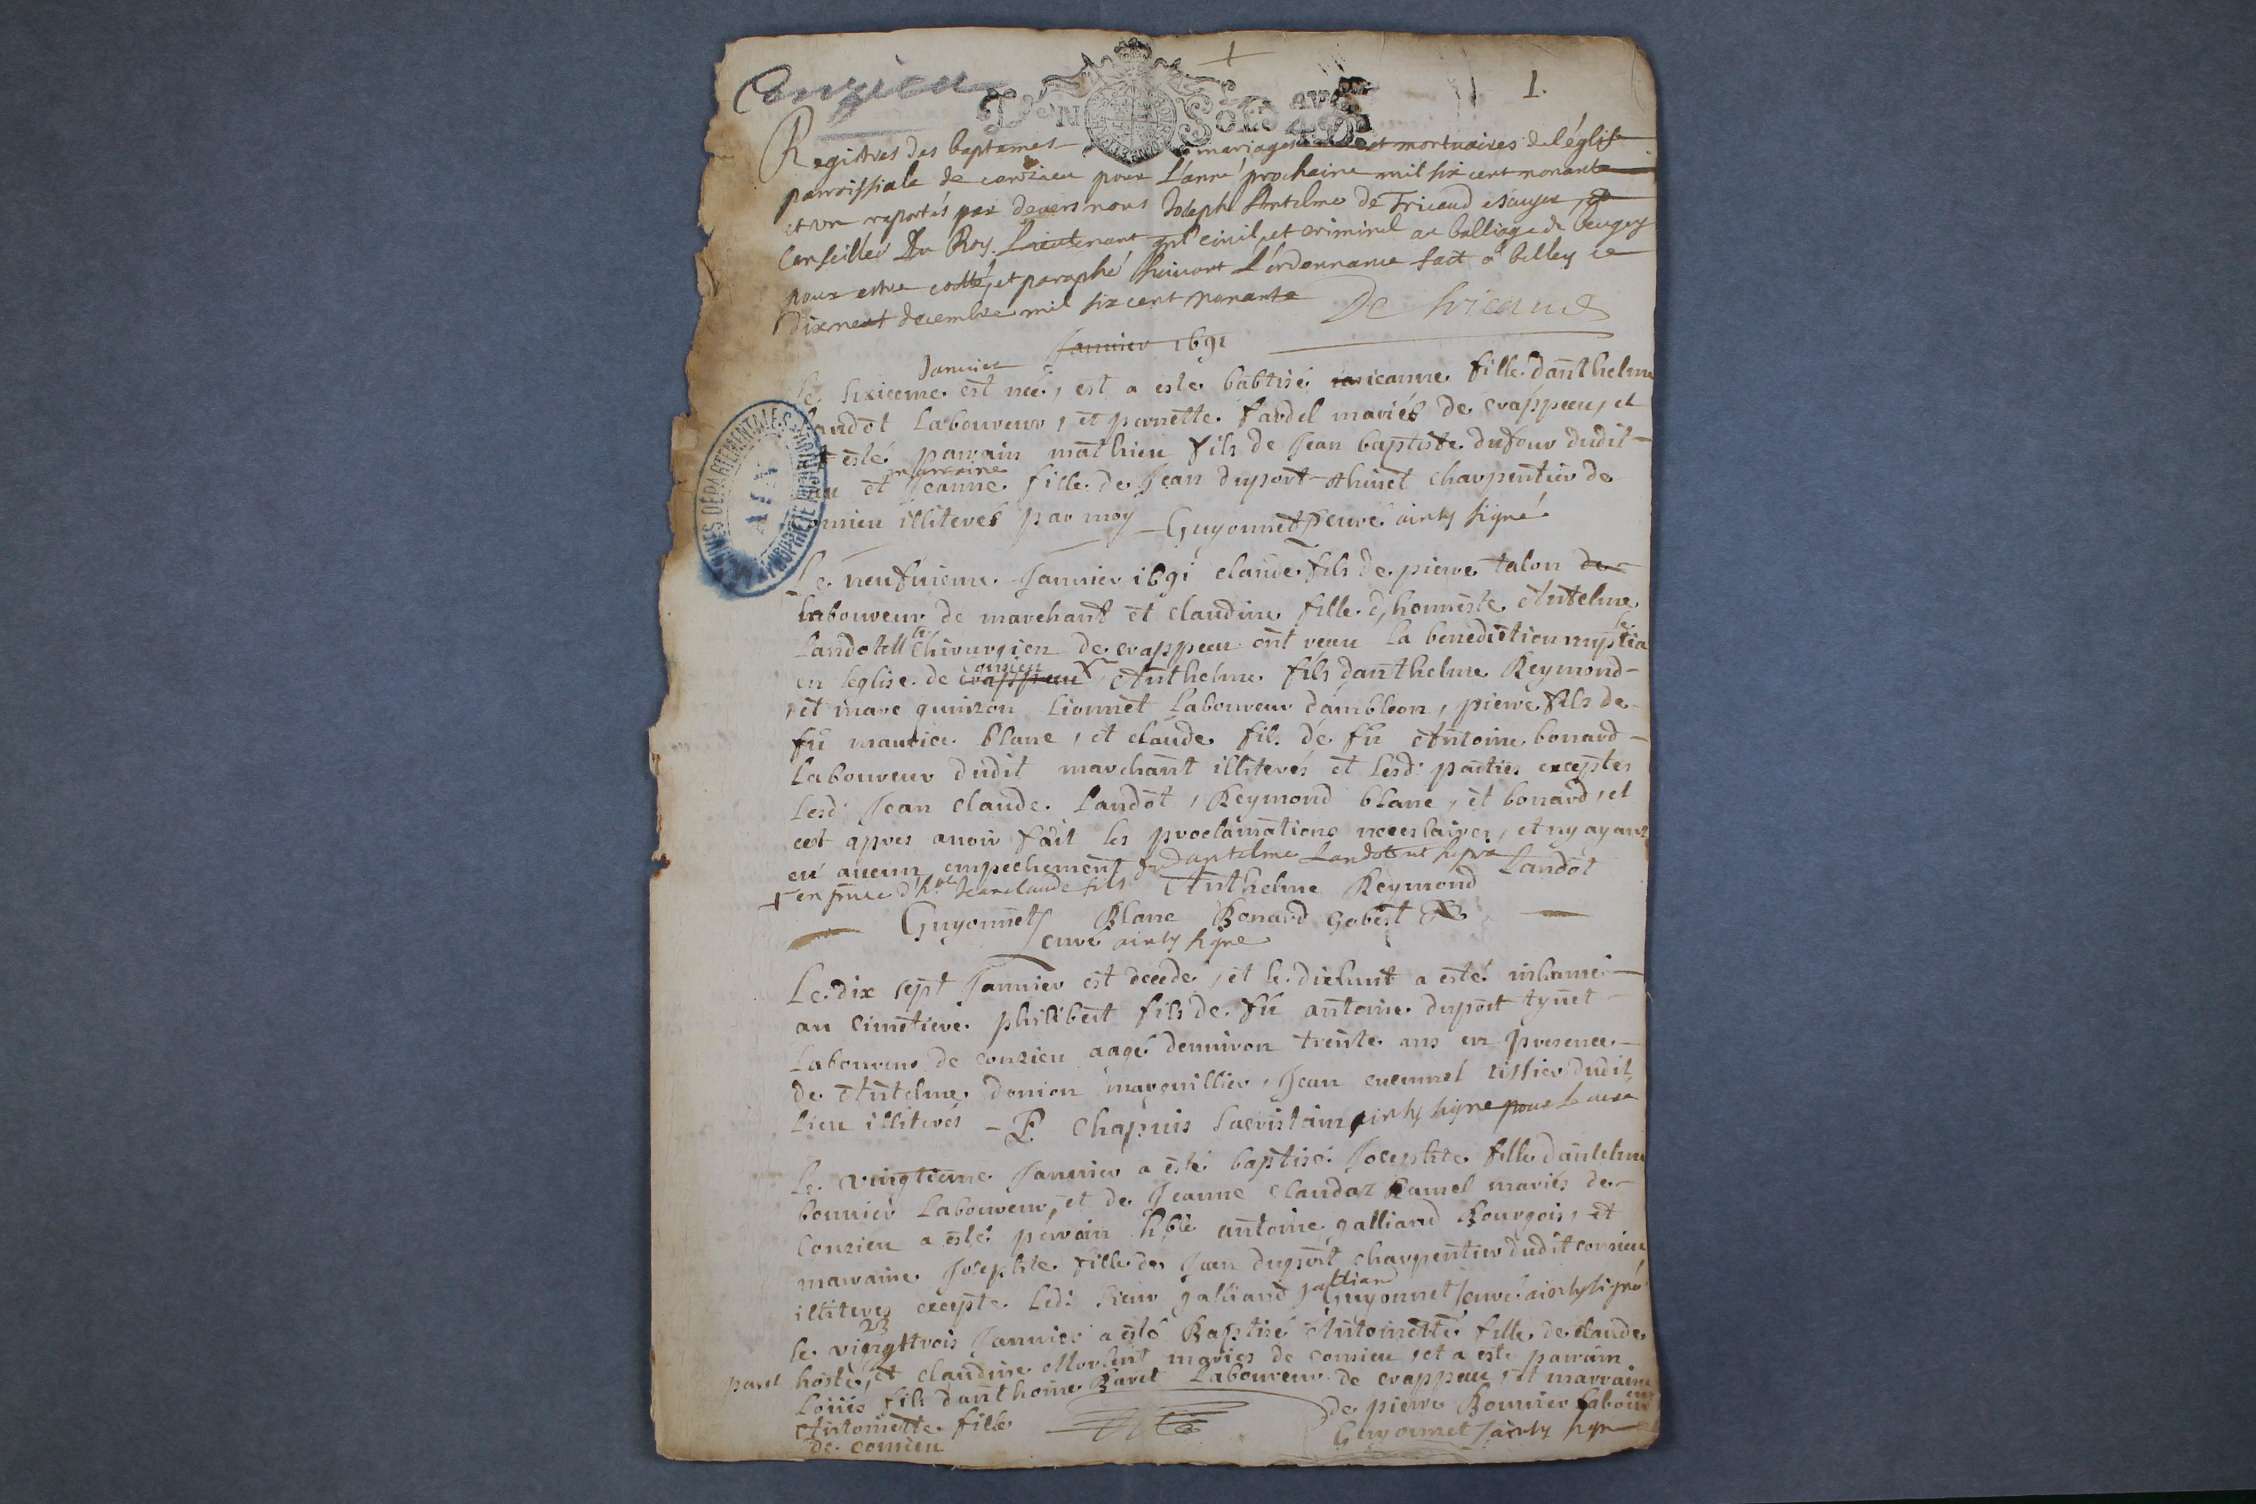 Conzieu
1.
Un Sold
Registres des baptemes mariages et mortuaires de l'eglise
parroissiale de conzieu pour L'anné prochaine mil six cent nonante
et un reportés par devers nous Joseph Antelme de Tricaud escuyer
Conseiller Du Roy Lieutenant gnl civil et criminel au balliage de beugey
pour estre cotté, et paraphé suivant L'ordonnance fait a belley ce
dixneuf decembre mil six cent nonante De tricaud
Janvier 1691
Janvier
Le sixieme est neé, est a este babtisé jeanne fille danthelme
Landot Laboureur, et pernette fardel mariés de crappeou, et
esté parrain mathieu fils de Jean baptiste dufour dudit
marraine
lieu et Jeanne fille de Jean duport thinet charpentier de
conzieu illiterés par moy Guyonnet curé ainsy signé
Le neufvieme Janvier 1691 claude fils de pierre talon de
Laboureur de marchant et claudine fille d,honneste Antelme
Landot chirurgien de crappeou ont receu la benediction nuptia le
conzieu
en leglise de crappeou Anthelme fils danthelme Reymond
et marc quinson Lionnet Laboureur dambleon, pierre fils de
fû maurice blanc, et claude fil. de fû Antoine bonard
Laboureur dudit marchant illiterés et lesd: parties exceptes
lesd: Jean claude Landot, Reymond blanc, et bonard, et
cest apres avoir fait les proclamations necessaires, et ny ayant
eû aucun empechement dantelme Landot Landot
en pnce d'h Jean claude fils Anthelme Reymond
Guyonnet Blanc Bonard gobert
curé ainsy signé
Le dix sept Janvier est decede, et le dielunt a esté inhumé
au cimetiere philibert fils de fû antoine duport tynet
Laboureur de conzieu aagé denviron trente ans en presence
de Antelme donion marguillier, Jean tissier dudit
lieu illiterés - P. Chapuis sacristain ainsy signe pour le curé
Le vingtieme Janvier a esté baptisé Josephte fille dantelme
bonnier Laboureur, et de Jeanne claudaz mariés de
Conzieu a esté parrain hble antoine galliand Bourgois, et
marraine Josephte fille de Jean duport charpentier dudit conzieu
illiteres excepte led: sieur galliand galliand Guyonnet curé ainsy signé
23
le vingttrois Janvier a esté Baptisé Antoinette fille de claude
paret hoste, et claudine mariés de conzieu, et a este parrain
Loüis fils danthoine Baret Laboureur de crappeou, et marraine
Antoinette fille de pierre Bonnier Laboureur
de conzieu Guyonnet ainsy signe